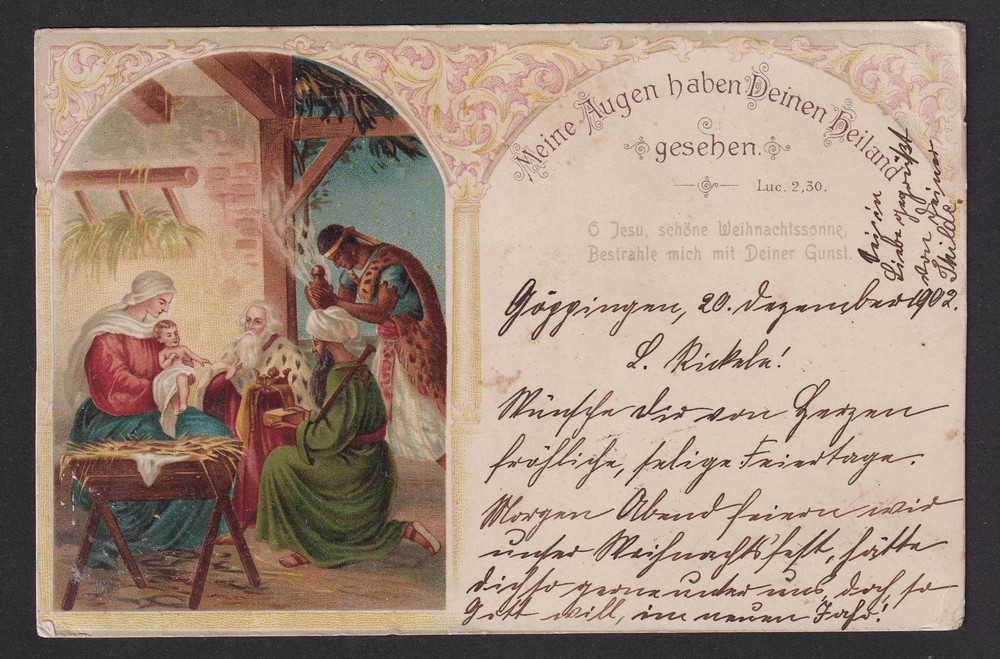 Meine Augen haben Deinen Heiland
gesehen.
Luc. 2,30.
O Jesu, schöne Weihnachtssonne,
Bestrahle mich mit Deiner Gunst.
Göppingen, 20. Dezember 1902.
L. Rickele!
Wünsche Dir von Herzen
fröhliche, selige Feiertage.
Morgen Abend feiern wir
unser Weihnachtsfest, hätte
Dich so gerne unter uns, doch, so
Gott will, im neuen Jahr!
Liebe gegrüßt
von Deiner
Thilde.